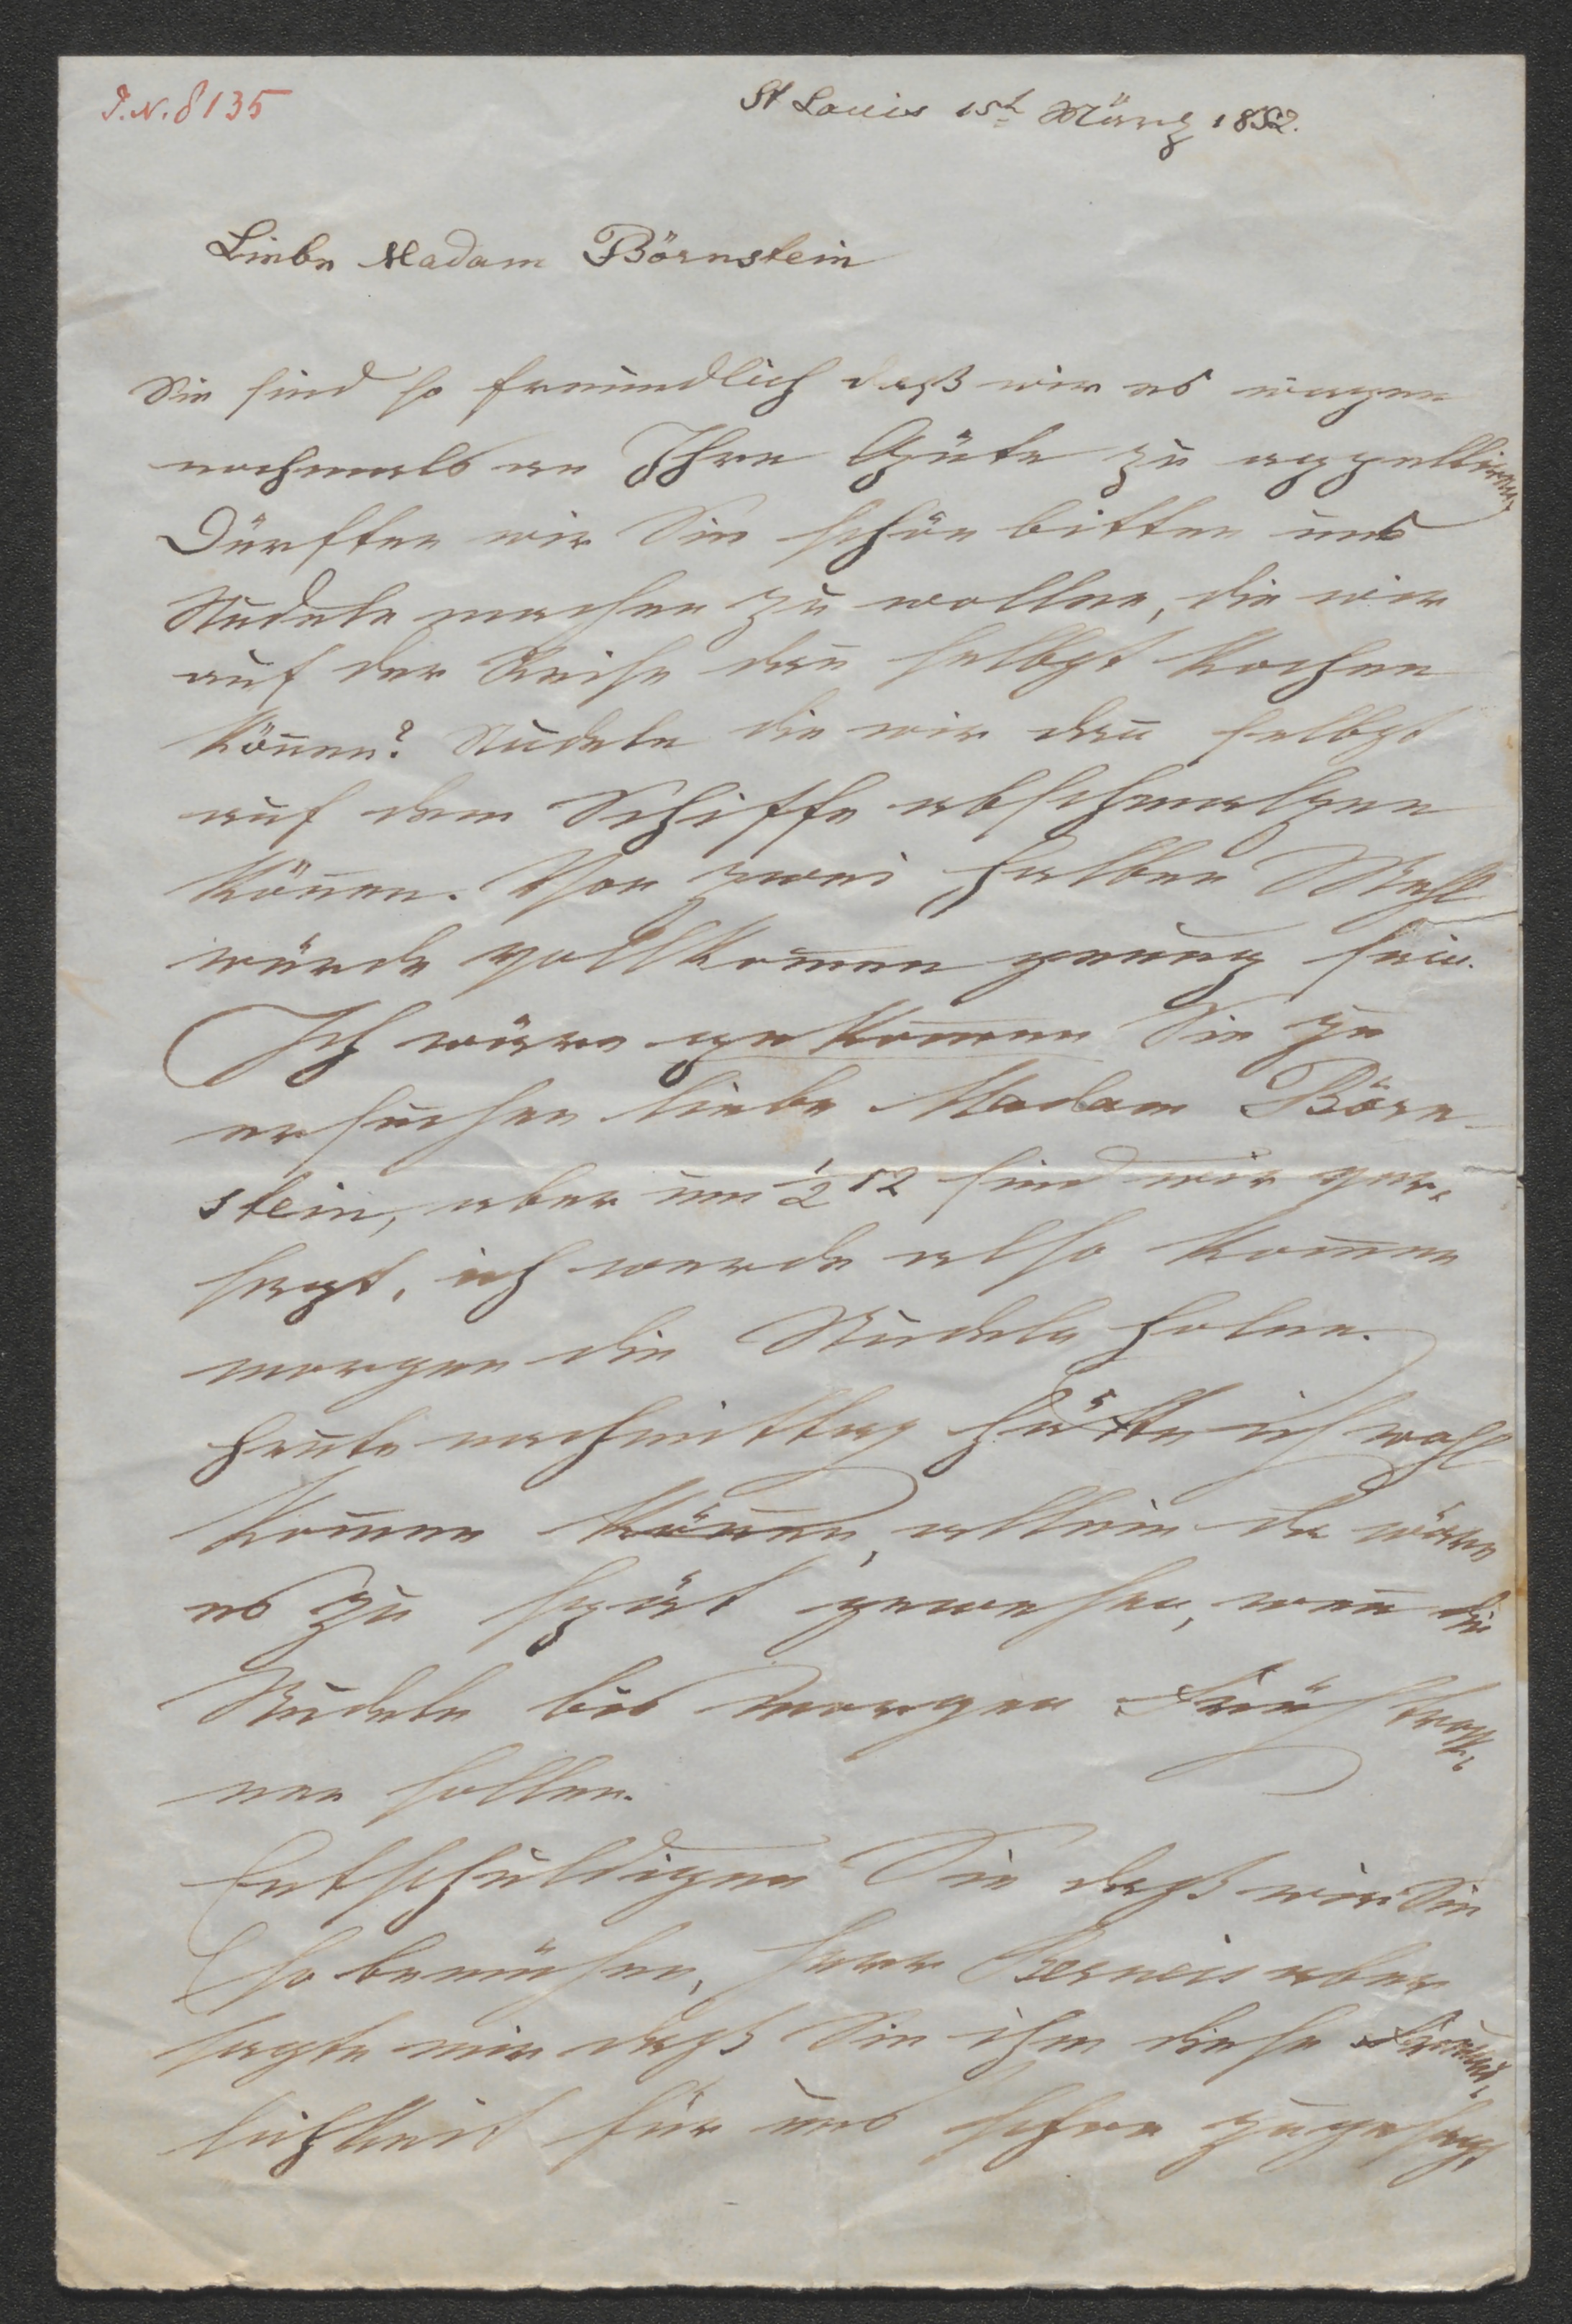 I.N. 8135
St Louis 15t März 1852.
Liebe Madam Börnstein
Sie sind so freundlich daß wir es wagen
nochmals an Ihre Güte zu appelliren
Dürften wir Sie schön bitten uns
Nudeln machen zu wollen, die wir
auf der Reise dan̄ selbst kochen
kön̄en? Nudeln die wir dan̄ selbst
auf dem Schiffe abschmalzen
kön̄en. Von zwei halben Mehl
würde vollkom̄en genug sein.
Ich wäre gekom̄en Sie zu
ersuchen liebe Madam Börn-
stein, aber um ½ 12 sind wir per-
 ich werde also kom̄en
morgen die Nudeln holen.
Heute nachmittag hätte ich wohl
kom̄en kön̄en, allein da wäre
es zu spät gewesen, wen̄ die
Nudeln bis morgen Früh trock-
nen sollen.
Entschuldigen Sie daß wir Sie
so bemühen, Herr Bernais aber
sagte mir daß Sie ihm diese Freund-
lichkeit für uns schon zugesagt